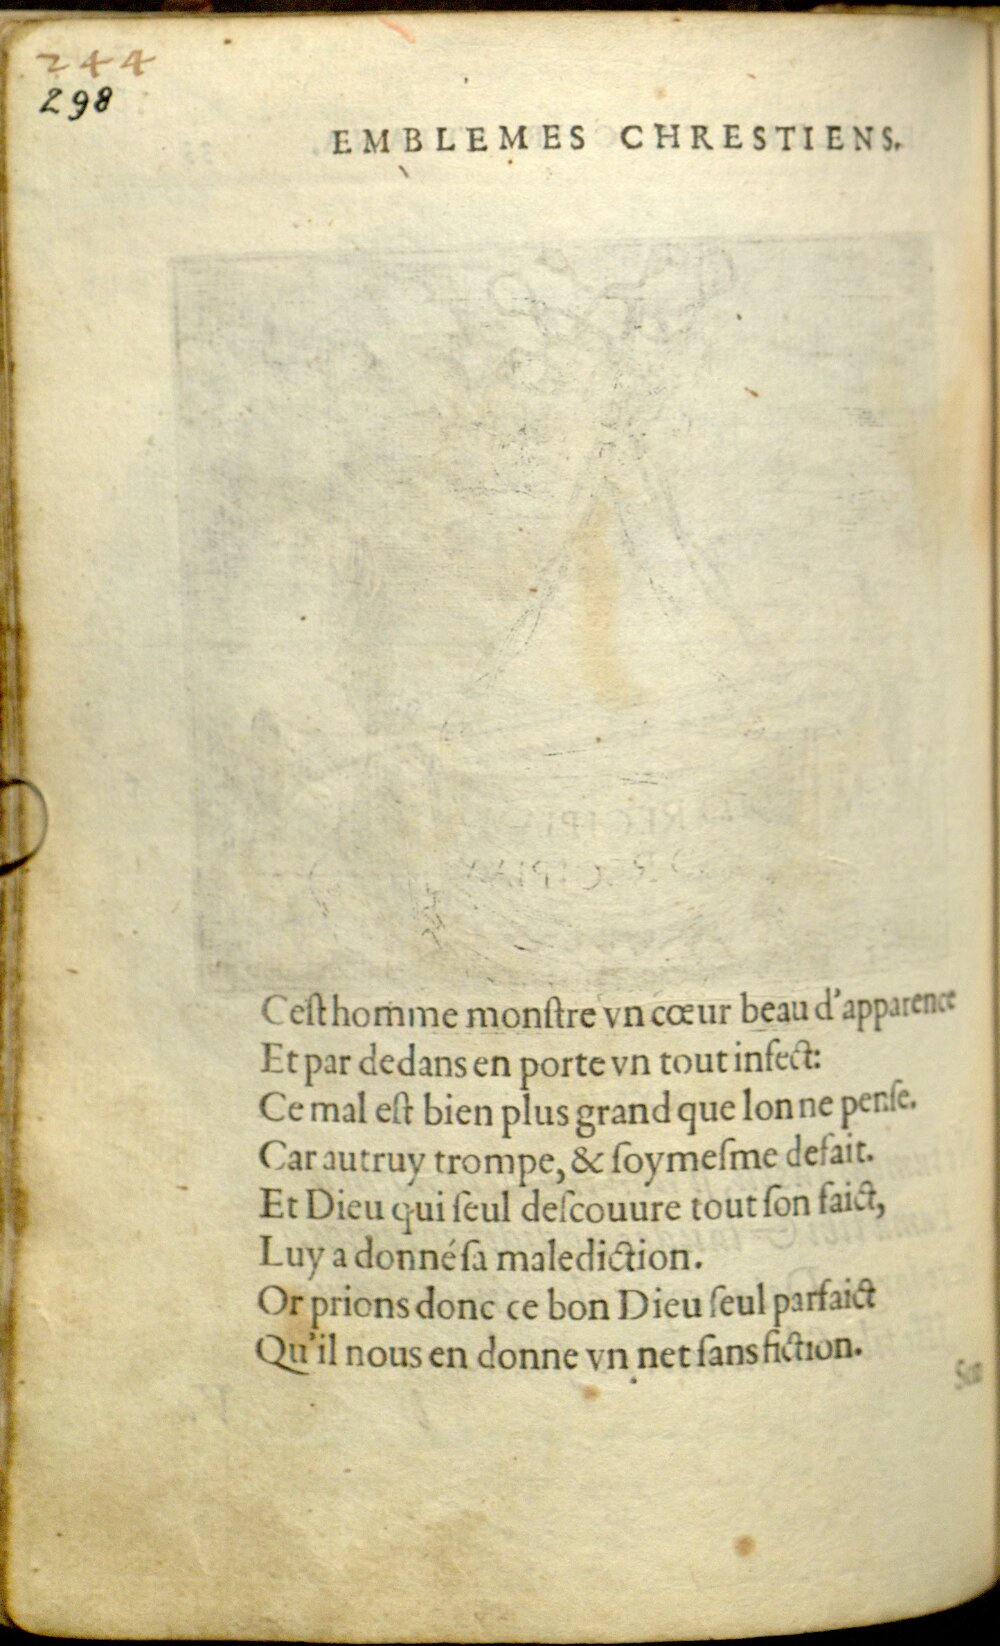 244
298
EMBLEMES CHRESTIENS.
Cest homme monſtre vn cœur beau d'apparence
Et par dedans en porte vn tout infect:
Ce mal eſt bien plus grand que lon ne penſe.
Car autruy trompe, & ſoymeſme defait.
Et Dieu qui ſeul deſcouure tout ſon faict,
Luy a donné ſa malediction.
Or prions donc ce bon Dieu ſeul parfaict
Qu'il nous en donne vn net ſans fiction.